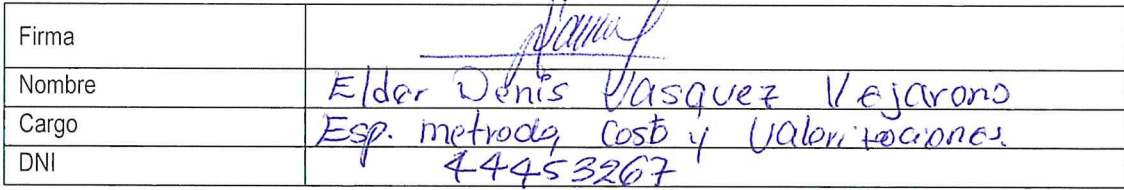 Firma
Nombre Elder Denis Vasquez Vejarono
Cargo Esp. metrado, Costo y Valorizaciones.
DNI 44453267